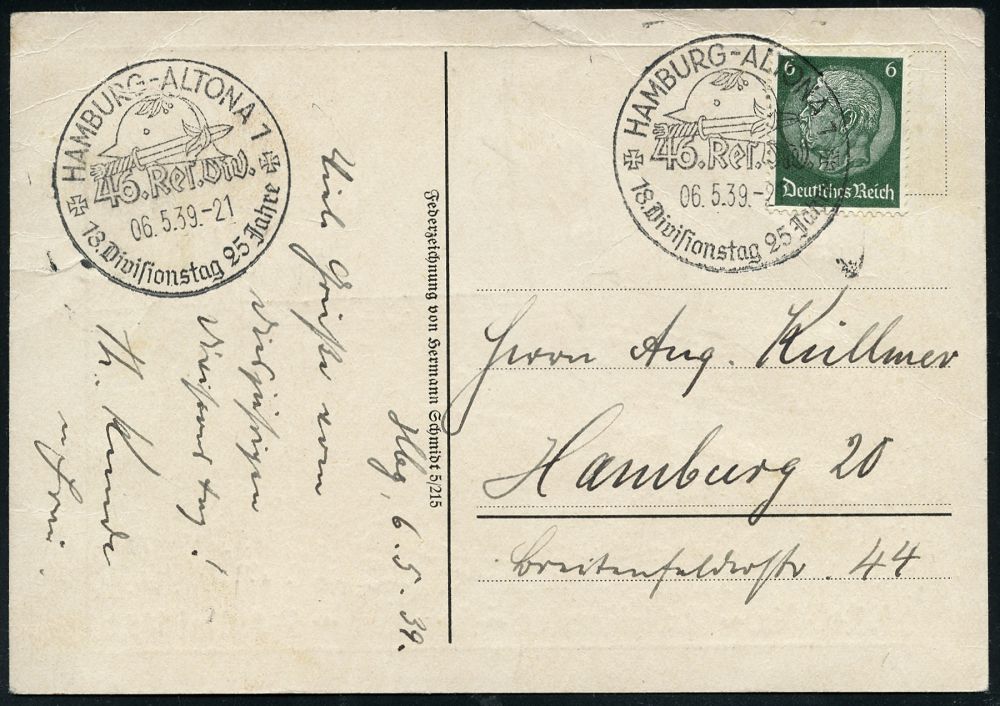 HAMBURG-ALTONA 1
46. Res. Div.
06.5.39.-21
18. Divisionstag 25 Jahre
HAMBURG-ALTONA 1
46. Res. Div.
06.5.39.-2
18. Divisionstag 25 Jahre
6 6
Deutsches Reich
Hbg, 6.5.39.
Viele Grüße vom
diesjährigen
Divisionstag!
H. Kunde
u. Frau.
Federzeichnung von Hermann Schmidt 5/215
Herrn Aug. Küllmer
Hamburg 20
Breitenfelderstr. 44